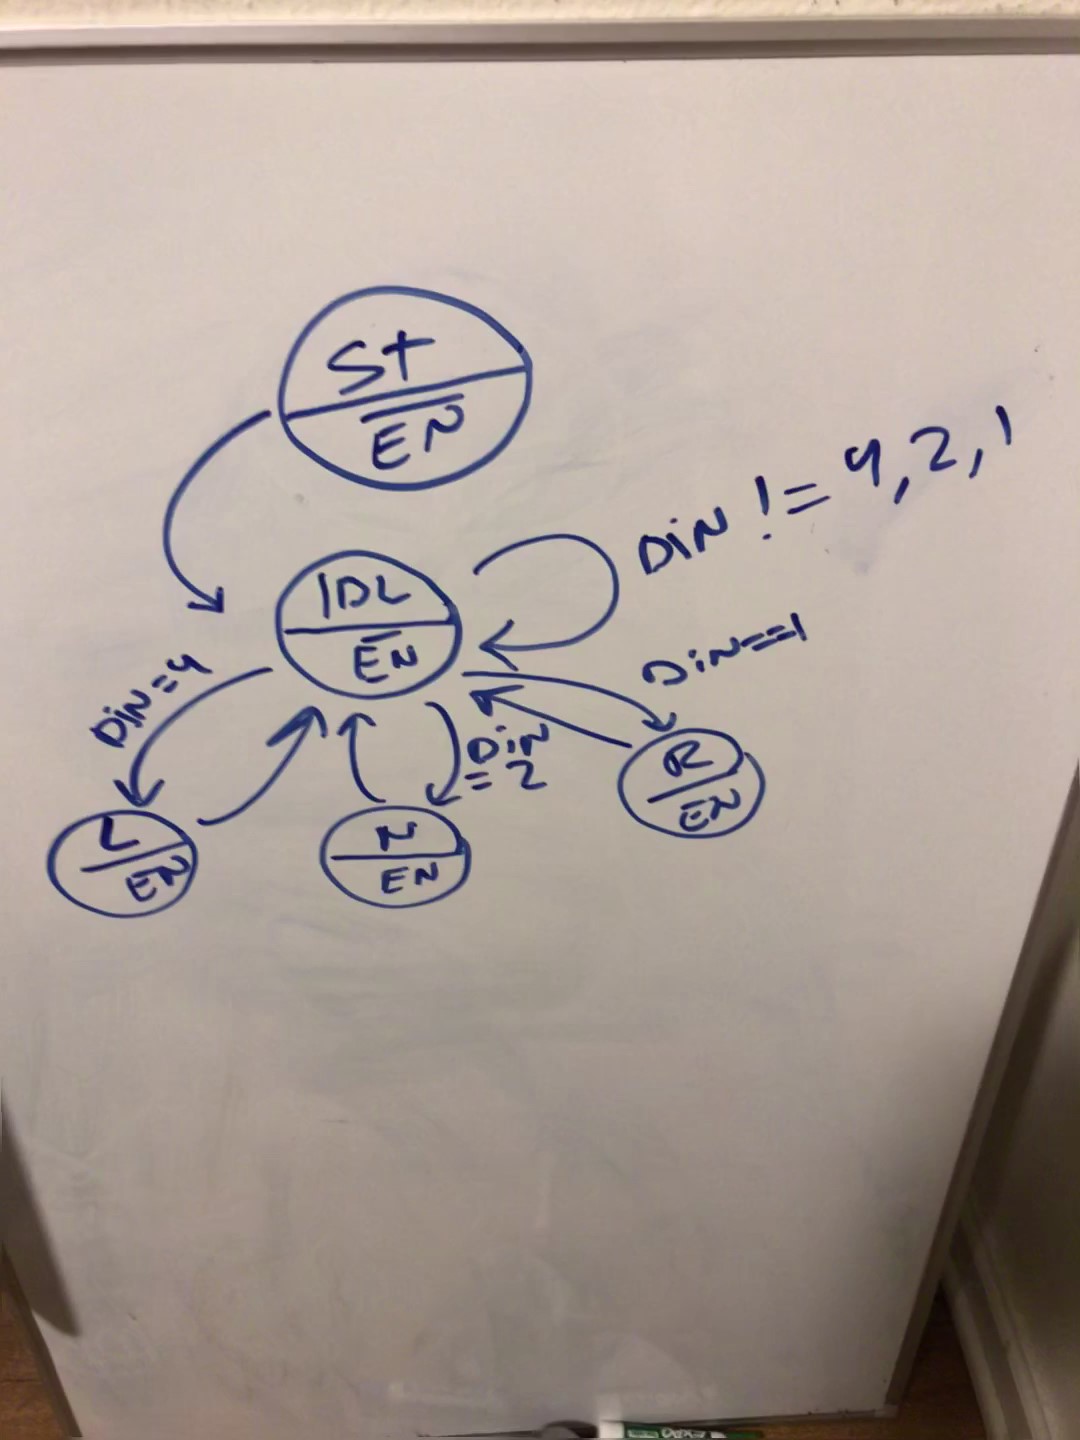 St
E̅N̅
DiN != 4,2,1
IDL
E̅N̅
DiN==1
DiN=4
DiN
= 2
R
EN
L
EN
N
EN
EXPO